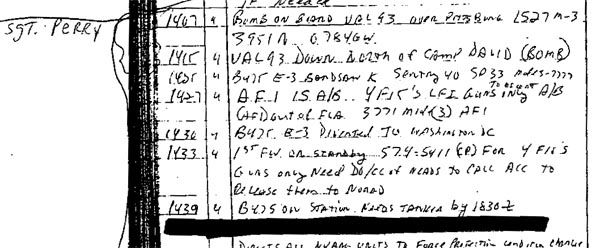 IF NEEDED
SGT. PERRY
1407 4 BOMB ON BOARD UAL 93 OVER PITTSBURG 1527 M-3
3951N 07846W
1415 4 UAL 93 DOWN NORTH OF CAMP DAVID (BOMB)
4 B475 E-3 SENTRY 40 SD 33
1427 4 A.F.1 IS A/B.. 4 F15's LFI GUNS A/B
TO ESCORT
(AF1) out of FLA 3771 (3) AF1
1430 4 B475 E-3 DIVERTED TO WASHINGTON DC
1433 4 1ST FW ON STANDBY 574-5411 (P) FOR 4 F15's
GUNS only NEED DO/CC of NEADS TO CALL ACC TO
RELEASE them to NORAD
1439 4 B475 ON STATION. NEEDS TANKER by 1830Z
DIRECTS ALL UNITS TO FORCE PROTECTION CONDITION CHARLIE